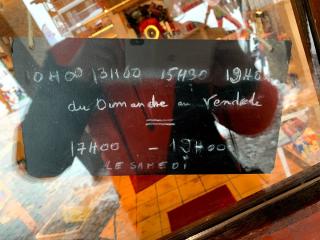 10H00 13H00 15H30 19H0
du Dimanche au Vendredi
17H00 - 19H00
LE SAMEDI